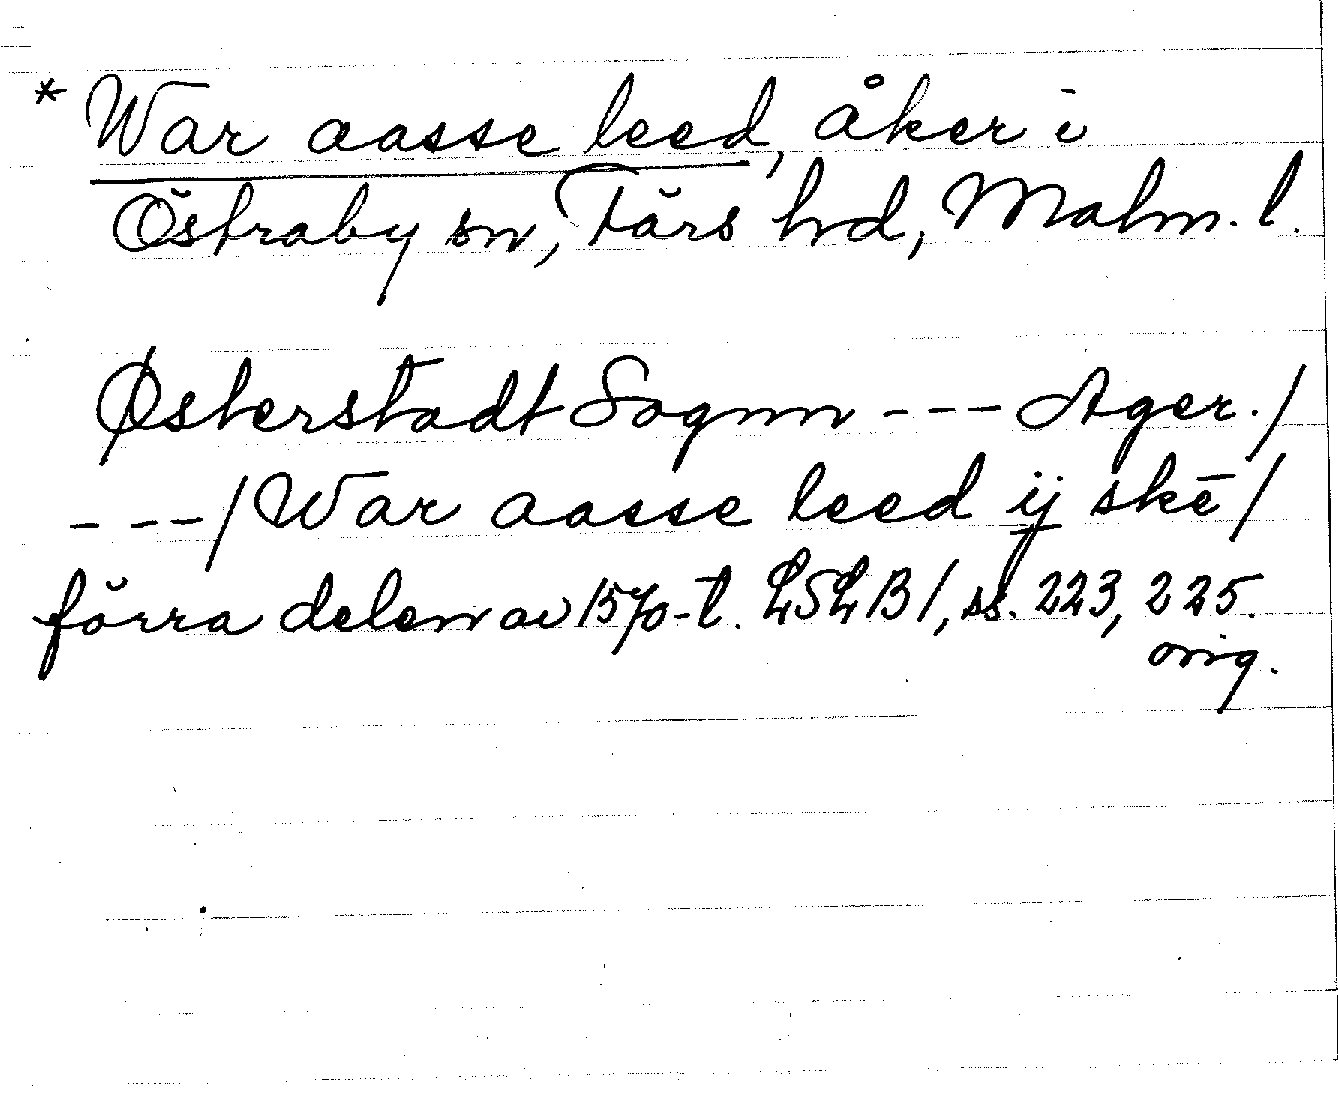 * War aasse leed, åker i
Östraby sn, Färs hd, Malm. l.
Østerstadt Sognn --- Ager./
---/ War aasse leed ij skē/
förra delen av 1570-t. LSLB1, ss. 223, 225.
orig.